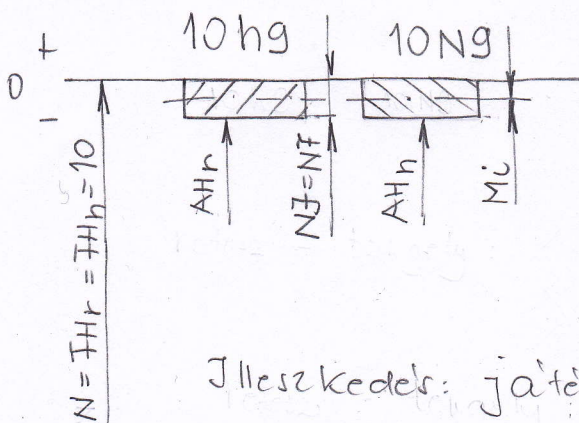 +
10 h9 10 N9
0
-
N = FHr = FHn = 10
AHr
NJ = NF
AHn
Mi
Illeszkedés: játé